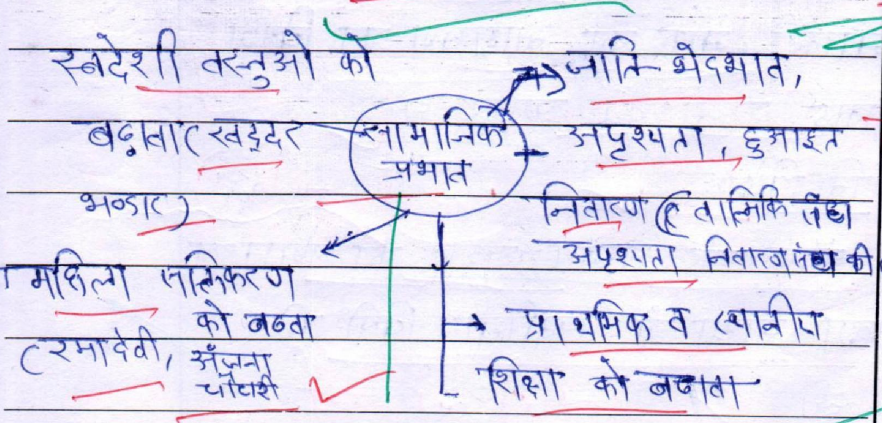 स्वदेशी वस्तुओ को
बढ़ावा (खद्दर
भण्डार)
सामाजिक
प्रभाव
→ जाति भेदभाव,
अपृश्यता, छुआछत
निवारण ( वाल्मिकि संघ
अपृश्यता निवारण संघ की
महिला सशक्तिकरण
को बढता
(रमादेवी, अंजना
चौधरी
→ प्राथमिक व स्थानीय
शिक्षा को बढावा